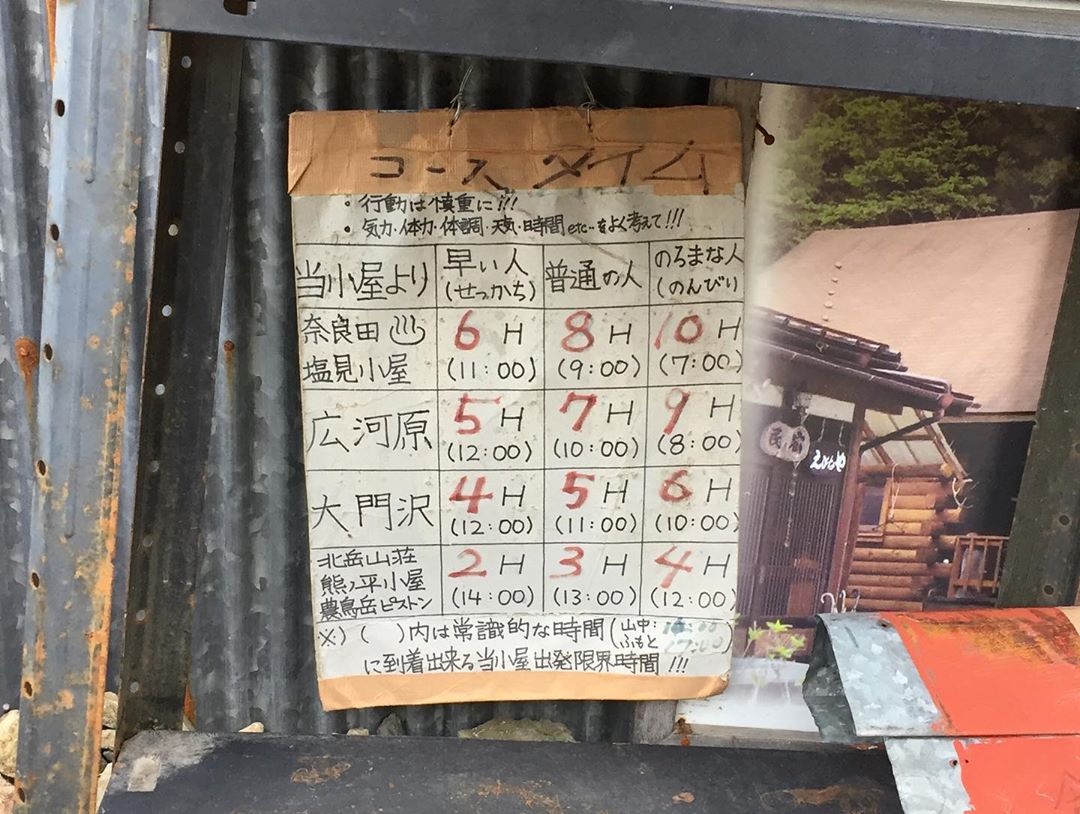 コースタイム
・行動は慎重に!!!
・気力・体力・体調・天気・時間etc…をよく考えて!!!
当小屋より 早い人(せっかち) 普通の人 のろまな人(のんびり)
奈良田♨ 6H 8H 10H
塩見小屋 (11:00) (9:00) (7:00)
広河原 5H 7H 9H
(12:00) (10:00) (8:00)
大門沢 4H 5H 6H
(12:00) (11:00) (10:00)
北岳山荘
熊ノ平小屋 2H 3H 4H
農鳥岳ピストン (14:00) (13:00) (12:00)
※)( )内は常識的な時間(山中:16:00 ふもと17:00)
に到着出来る当小屋出発限界時間!!!
民宿
えびなや